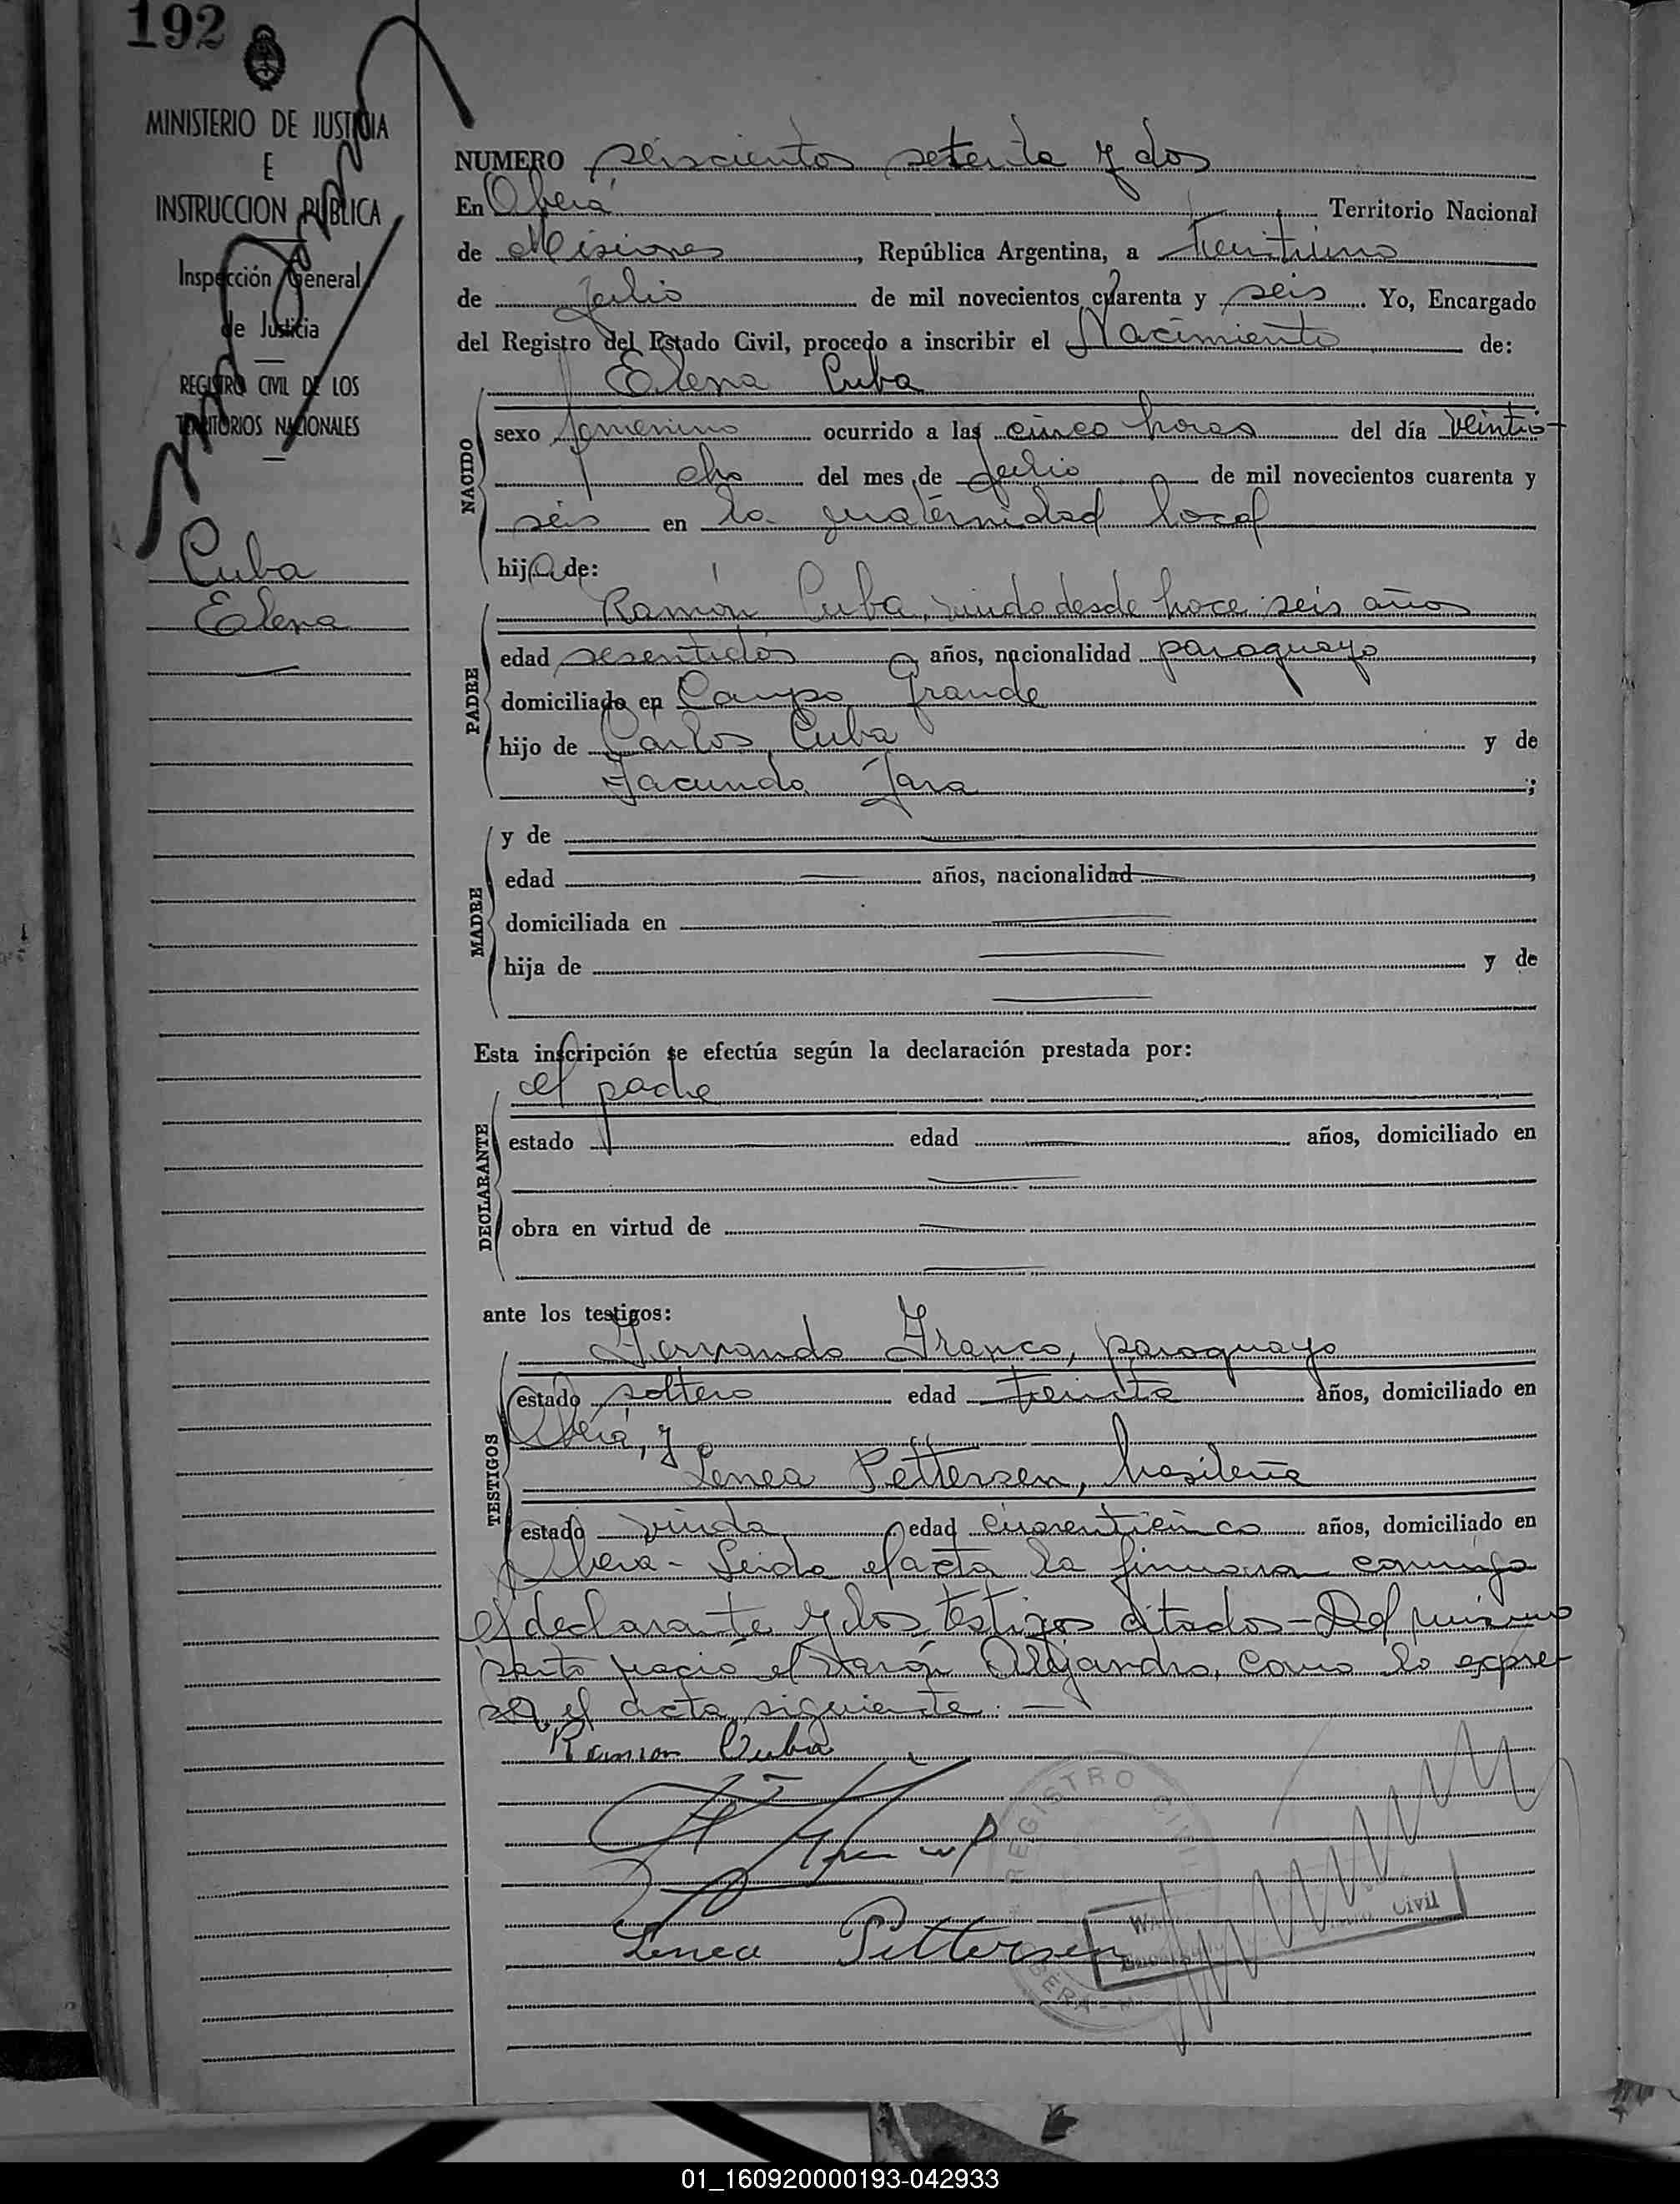 192
MINISTERIO DE JUSTICIA
E
INSTRUCCION PUBLICA
Inspección General
de Justicia
REGISTRO CIVIL DE LOS
TERRITORIOS NACIONALES
Cuba
Elena
NUMERO seiscientos setenta y dos
En Oberá Territorio Nacional
de Misiones, República Argentina, a treintiuno
de Julio de mil novecientos cuarenta y seis. Yo, Encargado
del Registro del Estado Civil, procedo a inscribir el Nacimiento de:
Elena Cuba
NACIDO
sexo femenino ocurrido a las cinco horas del día veintio-
cho del mes de Julio de mil novecientos cuarenta y
seis en la maternidad local
hija de:
PADRE
Ramón Cuba, viudo desde hace seis años
edad sesentidós años, nacionalidad paraguayo,
domiciliado en Campo Grande
hijo de Carlos Cuba y de
Facunda Jara;
MADRE
y de
edad años, nacionalidad,
domiciliada en
hija de y de
Esta inscripción se efectúa según la declaración prestada por:
DECLARANTE
el padre
estado edad años, domiciliado en
obra en virtud de
ante los testigos:
TESTIGOS
Fernando Franco, paraguayo
estado soltero edad treinta años, domiciliado en
Oberá, y
Lenea Pettersen, brasileña
estado viuda edad cuarenticinco años, domiciliado en
Oberá - Leida el acta la firmaron conmigo
el declarante y los testigos citados - Del mismo
parto nació el varón Alejandro, como lo expre-
sa el acta siguiente. —
Ramon Cuba
Lenea Pettersen
REGISTRO CIVIL
OBERA
Civil
01_160920000193-042933